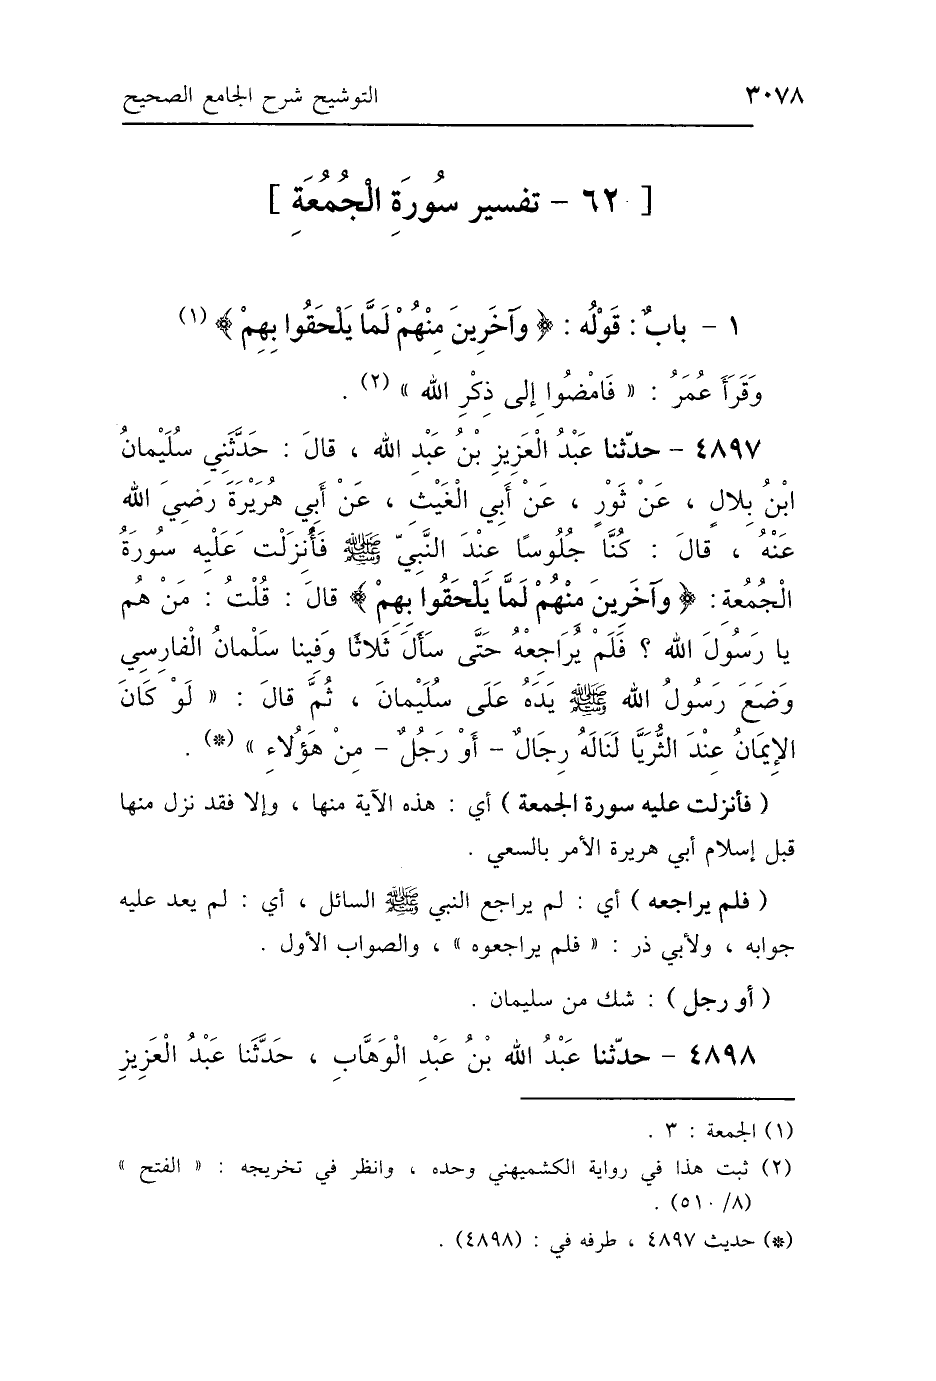 ٣٠٧٨ التوشيح شرح الجامع الصحيح
[ ٦٢ - تفسير سُورَةِ الْجُمُعَةِ ]
١ - بابٌ : قَوْلُه : ﴿ وَآخَرِينَ مِنْهُمْ لَمَّا يَلْحَقُوا بِهِمْ ﴾ (١)
وَقَرَأَ عُمَرُ : « فَامْضُوا إلى ذِكْرِ الله » (٢) .
٤٨٩٧ - حدّثنا عَبْدُ الْعَزِيزِ بْنُ عَبْدِ الله ، قالَ : حَدَّثَنِي سُلَيْمانُ
ابْنُ بِلالٍ ، عَنْ ثَوْرٍ ، عَنْ أَبِي الْغَيْثِ ، عَنْ أَبِي هُرَيْرَةَ رَضِيَ الله
عَنْهُ ، قالَ : كُنَّا جُلُوسًا عِنْدَ النَّبِيِّ ﷺ فَأُنزِلَتْ عَلَيْهِ سُورَةُ
الْجُمُعة : ﴿ وَآخَرِينَ مِنْهُمْ لَمَّا يَلْحَقُوا بِهِمْ ﴾ قالَ : قُلْتُ : مَنْ هُم
يا رَسُولَ الله ؟ فَلَمْ يُرَاجِعْهُ حَتَّى سَأَلَ ثَلاثًا وَفِينا سَلْمانُ الْفارِسِي
وَضَعَ رَسُولُ الله ﷺ يَدَهُ عَلَى سُلَيْمانَ ، ثُمَّ قالَ : « لَوْ كَانَ
الإِيمَانُ عِنْدَ الثُّرَيَّا لَنَالَهُ رِجَالٌ - أَوْ رَجُلٌ - مِنْ هَؤُلاءِ » (*) .
( فأنزلت عليه سورة الجمعة ) أي : هذه الآية منها ، وإلا فقد نزل منها
قبل إسلام أبي هريرة الأمر بالسعي .
( فلم يراجعه ) أي : لم يراجع النبي ﷺ السائل ، أي : لم يعد عليه
جوابه ، ولأبي ذر : « فلم يراجعوه » ، والصواب الأول .
( أو رجل ) : شك من سليمان .
٤٨٩٨ - حدّثنا عَبْدُ الله بْنُ عَبْدِ الْوَهَّابِ ، حَدَّثَنا عَبْدُ الْعَزِيزِ
(١) الجمعة : ٣ .
(٢) ثبت هذا في رواية الكشميهني وحده ، وانظر في تخريجه : « الفتح »
(٥١٠/٨) .
(*) حديث ٤٨٩٧ ، طرفه في : (٤٨٩٨) .